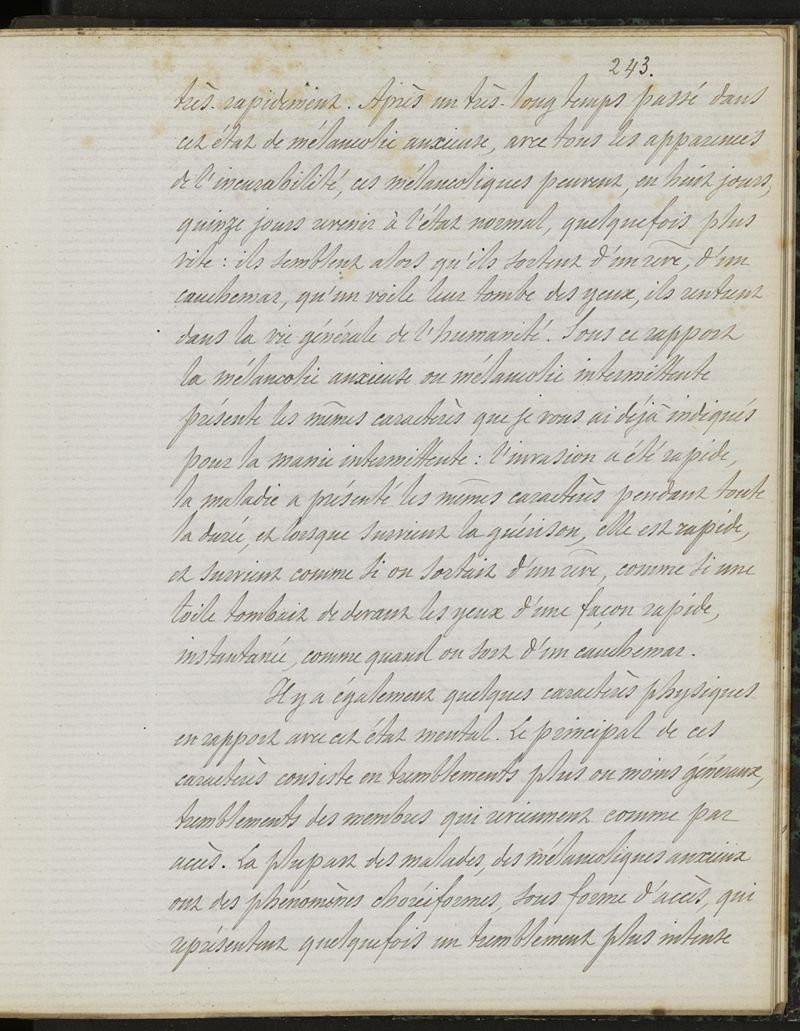 243.
très-rapidement. Après un très-long temps passé dans
cet état de mélancolie anxieuse, avec tous les apparences
de l'incurabilité, ces mélancoliques peuvent, en huit jours,
quinze jours revenir à l'état normal, quelquefois plus
vite : ils semblent alors qu'ils sortent d'un rêve, d'un
cauchemar, qu'un voile leur tombe des yeux, ils rentrent
dans la vie générale de l'humanité. Sous ce rapport
la mélancolie anxieuse ou mélancolie intermittente
présente les mêmes caractères que je vous ai déjà indiqués
pour la manie intermittente : l'invasion a été rapide,
la maladie a présenté les mêmes caractères pendant toute
la durée, et lorsque survient la guérison, elle est rapide,
et survient comme si on sortait d'un rêve, comme si une
toile tombait de devant les yeux d'une façon rapide,
instantanée, comme quand on sort d'un cauchemar.
Il y a également quelques caractères physiques
en rapport avec cet état mental. Le principal de ces
caractères consiste en tremblements plus ou moins généraux,
tremblements des membres qui reviennent comme par
accès. La plupart des malades, des mélancoliques anxieux
ont des phénomènes choréiformes, sous forme d'accès, qui
représentent quelquefois un tremblement plus intense